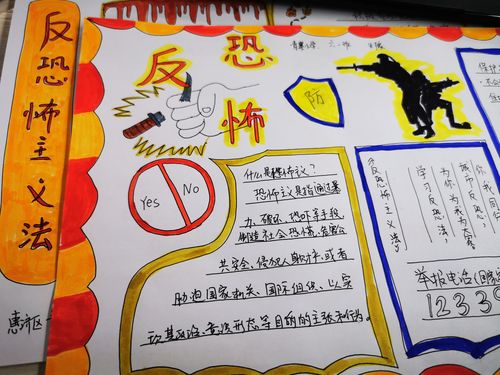 反恐怖主义法
惠济区
反恐怖
防
Yes
No
什么是恐怖主义？
恐怖主义是指通过暴
力、破坏、恐吓等手段，
制造社会恐慌、危害公
共安全、侵犯人身财产，或者
胁迫国家机关、国际组织，以实
现其政治、意识形态等目的的主张和行为。
《反恐怖主义法》
学习反恐法，
为你为我为大家。
举报电话
1233
保护